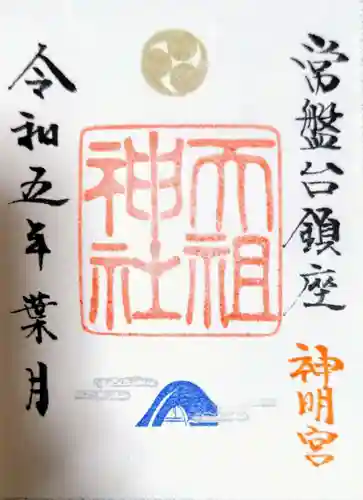 常盤台鎮座
神明宮
天祖
神社
令和五年葉月